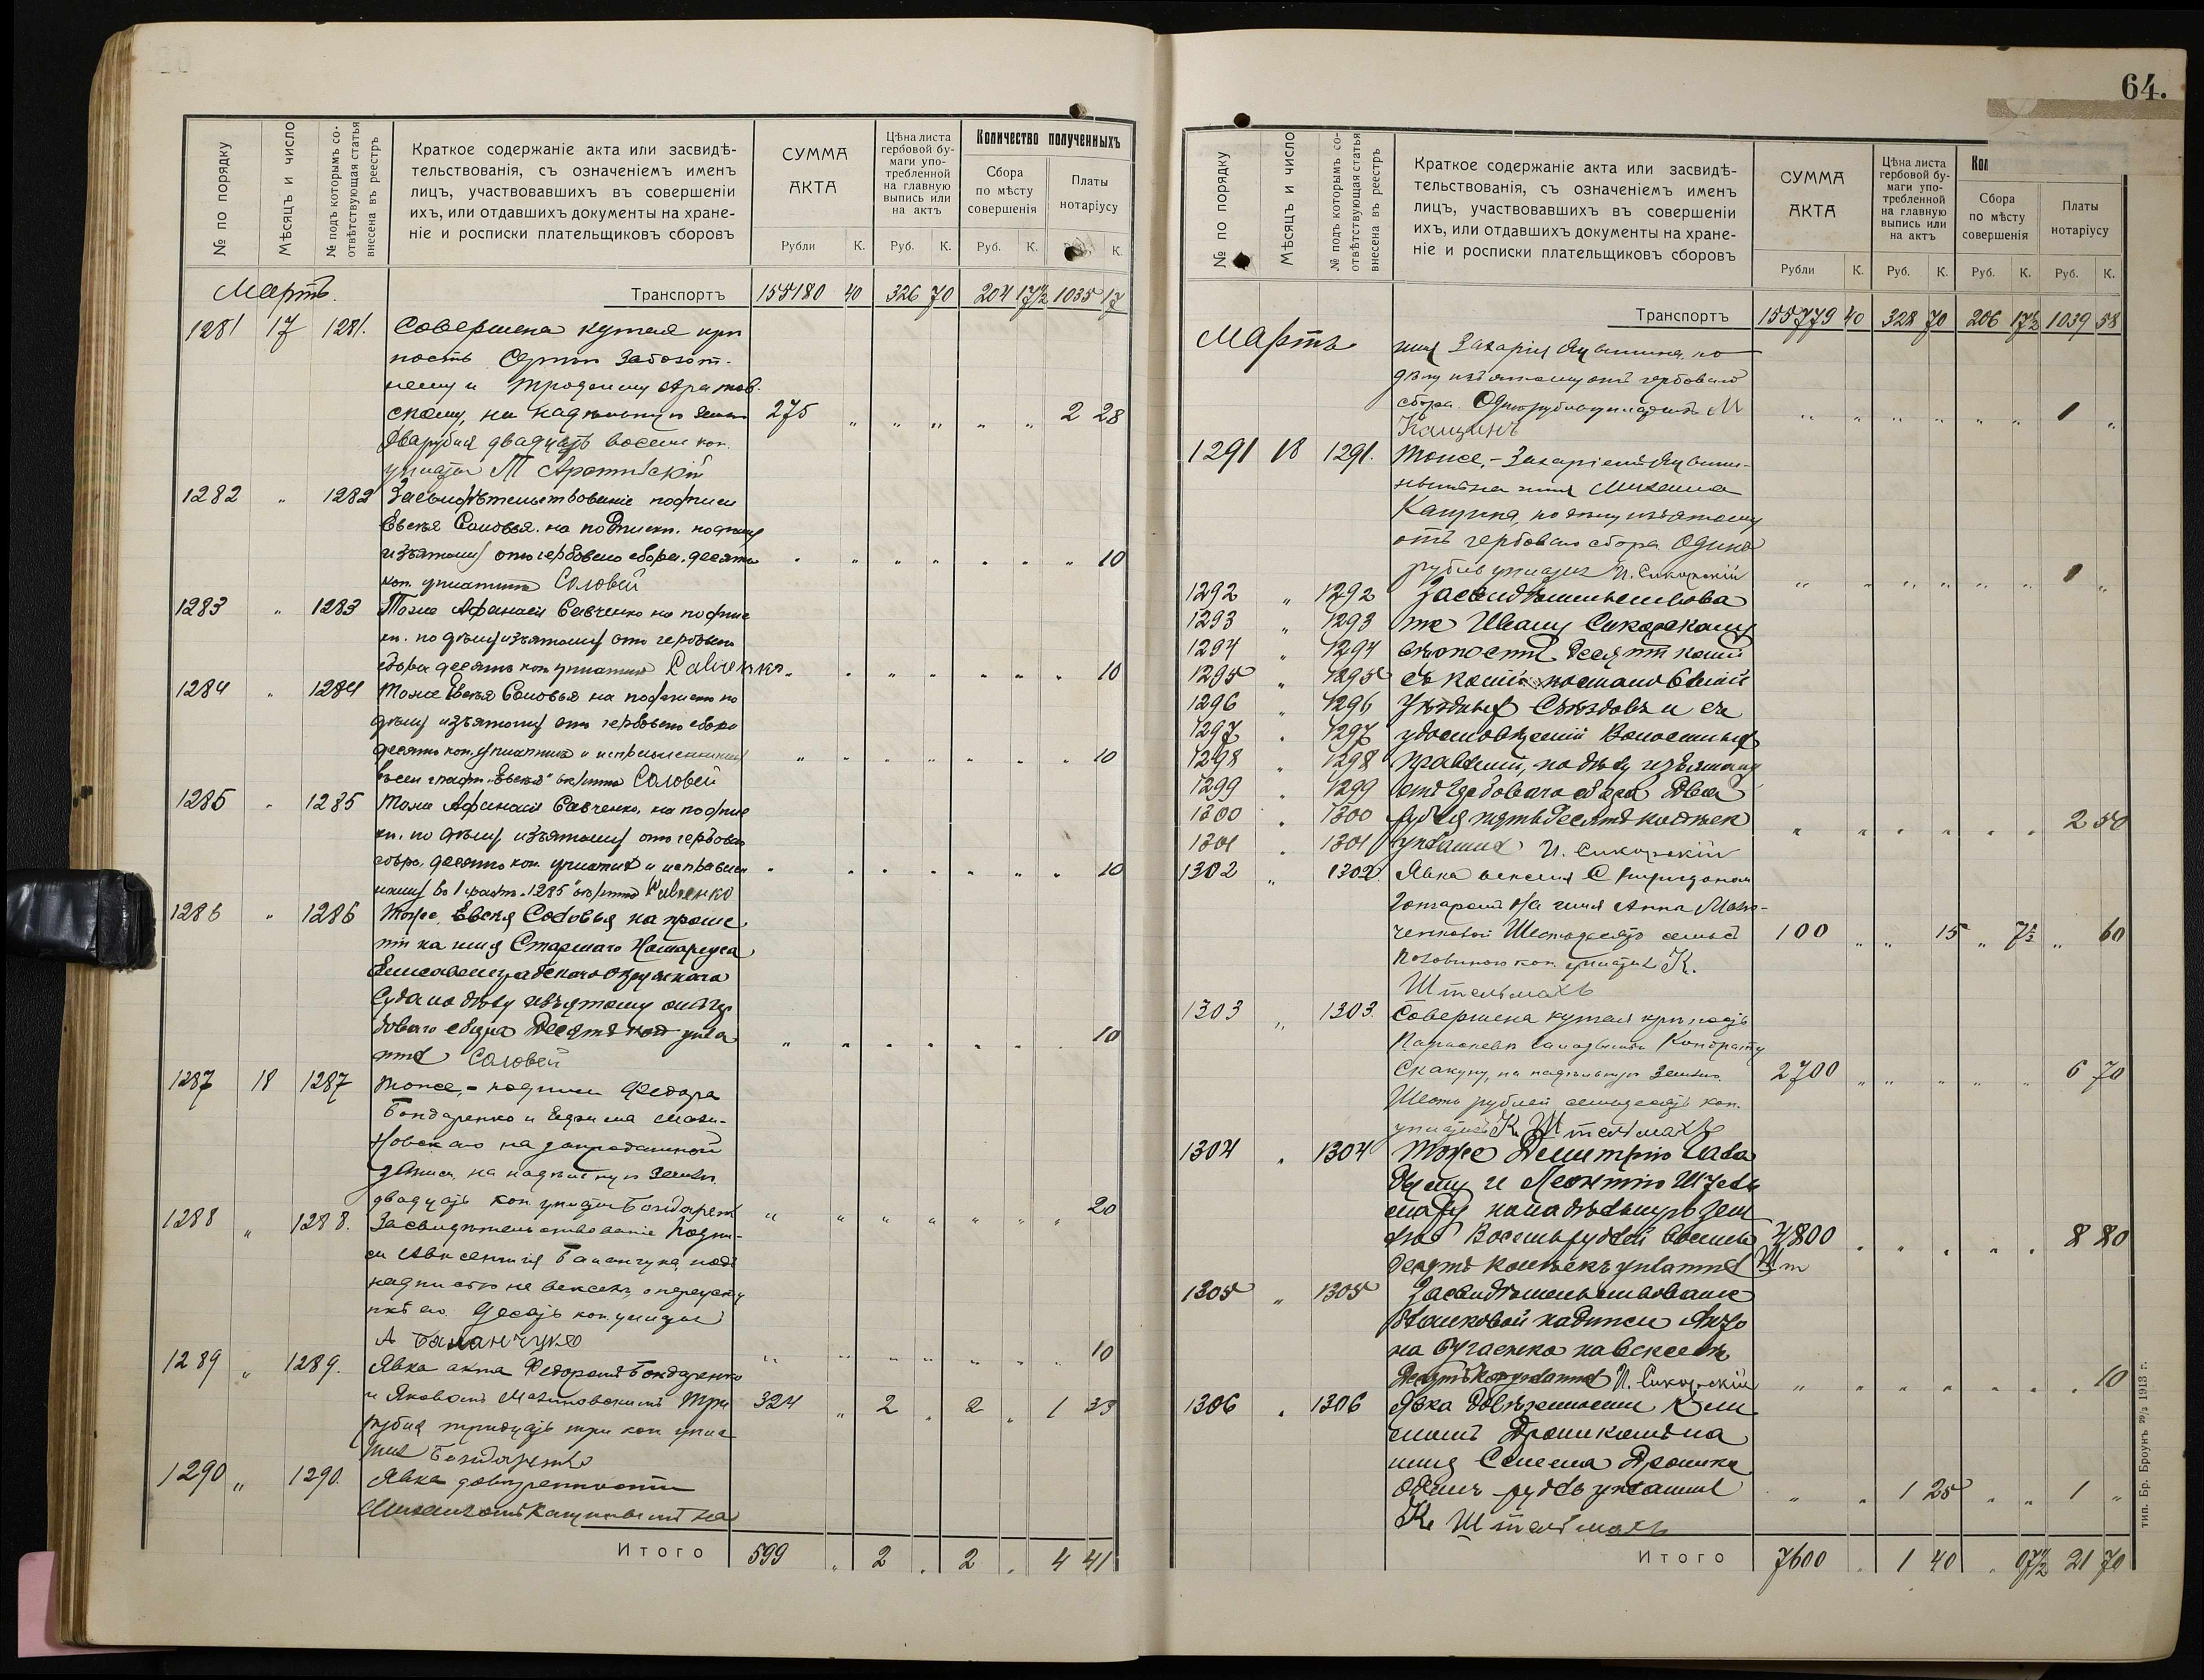 64.
№ по порядку
Мѣсяцъ и число
№ подъ которымъ со-
отвѣтствующая статья
внесена въ реестръ
Краткое содержаніе акта или засвидѣ-
тельствованія, съ означеніемъ именъ
лицъ, участвовавшихъ въ совершеніи
ихъ, или отдавшихъ документы на хране-
ніе и росписки плательщиковъ сборовъ
СУММА
АКТА
Рубли К.
Цѣна листа
гербовой бу-
маги упо-
требленной
на главную
выпись или
на актъ
Руб. К.
Количество полученныхъ
Сбора
по мѣсту
совершенія
Руб. К.
Платы
нотаріусу
К.
Мартъ. Транспортъ 155180 40 326 70 204 17½ 1035 17
1281 17 1281. Совершена купчая крѣ
пость
нему и
скому, на надѣльную землю 275 " " " " " 2 28
два рубля двадцать восемь коп.
уплатилъ
1282 " 1282 Засвидѣтельствованіе подписи
Евсѣя Соловья на подписки. по дѣлу
изъятому отъ гербоваго сбора. десять " " " " " " " 10
коп. уплатилъ Соловей
1283 " 1283 Тоже Афанасія Савченко на подпис
ки. по дѣлу изъятому отъ гербоваго
сбора десять коп уплатилъ Савченко " " " " " " " 10
1284 " 1284 Тоже Евсѣя Соловья на подписки по
дѣлу изъятому отъ гербоваго сбора
десять коп. уплатилъ и исправленному " " " " " " " 10
"Евсѣя" вѣрить Соловей
1285 " 1285 Тоже Афанасія Савченко, на подпис
ки. по дѣлу изъятому отъ гербоваго
сбора, десять коп. уплатилъ и исправлен " " " " " " " 10
ному во 1 графѣ "1285" вѣрить Савченко
1286 " 1286 Тоже, Евсѣя Соловья на проше
ніи на имя Старшаго Нотаріуса
Елисаветградскаго Окружнаго
Суда по дѣлу изъятому отъ гер
боваго сбора Десять коп упла " " " " " " " 10
тилъ Соловей
1287 18 1287 Тоже, - подписи Федора
Бондаренко и
новскаго на запродажной
записи, на надѣльную землю.
двадцать коп. уплатилъ Бондарен " " " " " " " 20
1288 " 1288. Засвидѣтельствованіе подпи-
си Авксентія Баланчука, подъ
надписью на векселѣ, о
Десять коп. уплатилъ
А Баланчукъ " " " " " " " 10
1289 " 1289. Явка акта Федоромъ Бондаренко
и Яковомъ Малиновскимъ Три 324 " 2 " 2 " 1 33
рубля тридцать три коп. упла
тилъ Бондаренко
1290 " 1290. Явка довѣренности
Михаиломъ Кащинымъ на
Итого 599 " 2 " 2 " 4 41
№ по порядку
Мѣсяцъ и число
№ подъ которымъ со-
отвѣтствующая статья
внесена въ реестръ
Краткое содержаніе акта или засвидѣ-
тельствованія, съ означеніемъ именъ
лицъ, участвовавшихъ въ совершеніи
ихъ, или отдавшихъ документы на хране-
ніе и росписки плательщиковъ сборовъ
СУММА
АКТА
Рубли К.
Цѣна листа
гербовой бу-
маги упо-
требленной
на главную
выпись или
на актъ
Руб. К.
Кол
Сбора
по мѣсту
совершенія
Руб. К.
Платы
нотаріусу
Руб. К.
Транспортъ 155779 40 328 70 206 17½ 1039 58
Мартъ имя Захарія по
дѣлу изъятому отъ гербоваго
сбора. Одинъ рубль уплатилъ М " " " " " " 1 "
Кащинъ
1291 18 1291. Тоже, - Захаріемъ
на имя Михаила
Кащина, по дѣлу изъятому
отъ гербоваго сбора Одинъ
рубль уплатилъ И. Сикорскій " " " " " " 1 "
1292 " 1292 Засвидѣтельствова
1293 " 1293 но Ивану Сикорскому
1294 " 1294 вѣрность Десяти копій
1295 " 1295 съ копій постановленій
1296 " 1296 Уѣздныхъ Съѣздовъ и съ
1297 " 1297 удостовѣреній Волостныхъ
1298 " 1298 правленій, по дѣлу изъятому
1299 " 1299 отъ гербоваго сбора Два
1300 " 1300 рубля пятьдесятъ копѣек " " " " " " 2 50
1301 " 1301 уплатилъ И. Сикорскій
1302 " 1302. Явка векселя Спиридономъ
Гончаромъ на имя Анны
Шестьдесятъ семь съ 100 " " 15 " 7½ " 60
половиною коп. уплатилъ К.
Штельмахъ
1303 " 1303. Совершена купчая крѣпость
Кондрату
Скакуну, на надѣльную землю. 2700 " " " " " 6 70
Шесть рублей семьдесятъ коп.
уплатилъ К. Штельмахъ
1304 " 1304 Тоже Димитрію
и Леонтію Штель
маху на надѣльную зем
лю Восемь рублей восемь 4800 " " " " " 8 80
десятъ копѣекъ уплатилъ Шт
1305 " 1305 Засвидѣтельствованіе
бланковой надписи
на Бугаенка на векселѣ
Десять коп уплатилъ И. Сикорскій " " " " " " " 10
1306 " 1306 Явка довѣренности
имя Семена
Одинъ рубль уплатилъ " " 1 25 " " 1 "
К. Штельмахъ
Итого 7600 " 1 40 " 07½ 21 70
тип. Бр. Броунъ 20/2 1913 г.